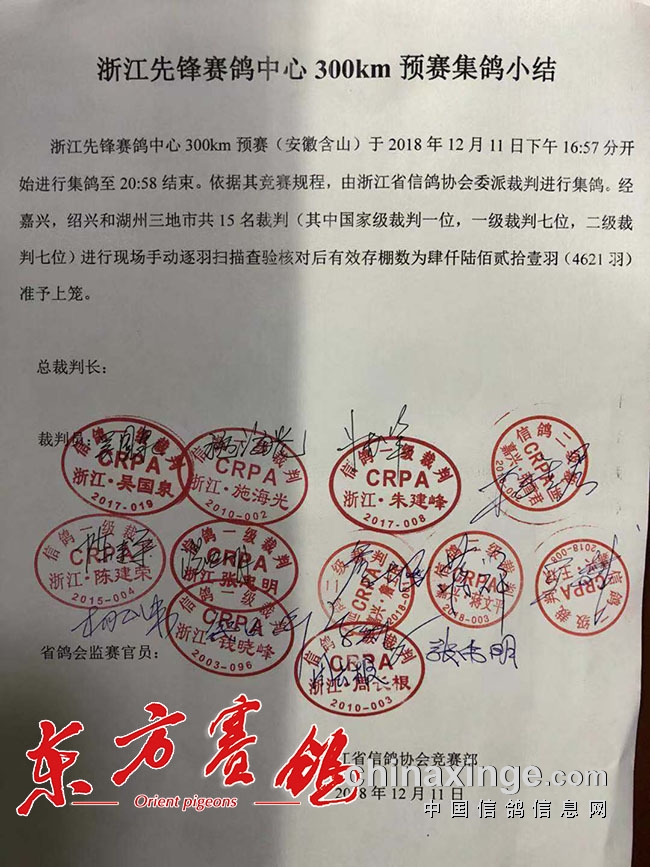 浙江先锋赛鸽中心 300km 预赛集鸽小结
浙江先锋赛鸽中心 300km 预赛（安徽含山）于 2018 年 12 月 11 日下午 16:57 分开
始进行集鸽至 20:58 结束。依据其竞赛规程，由浙江省信鸽协会委派裁判进行集鸽。经
嘉兴，绍兴和湖州三地市共 15 名裁判（其中国家级裁判一位，一级裁判七位，二级裁
判七位）进行现场手动逐羽扫描查验核对后有效存棚数为肆仟陆佰贰拾壹羽（4621 羽）
准予上笼。
总裁判长：
裁判员：
信鸽一级裁判
CRPA
浙江·吴国泉
2017-019
信鸽一级裁判
CRPA
浙江·施海光
2010-002
信鸽一级裁判
CRPA
浙江·朱建峰
2017-008
信鸽二级裁判
CRPA
嘉兴
信鸽一级裁判
CRPA
浙江·陈建荣
2015-004
信鸽一级裁判
CRPA
浙江·张忠明
CRPA
嘉兴
CRPA
嘉兴·蒋文平
2018-003
信鸽二级裁判
CRPA
信鸽一级裁判
CRPA
浙江·钱晓峰
2003-096
信鸽 裁判
CRPA
浙江·周长根
2010-003
张忠明
省鸽会监赛官员：
江省信鸽协会竞赛部
2018 年 12 月 11 日
东方赛鸽
Orient pigeons
chinaxinge.com
中国信鸽信息网